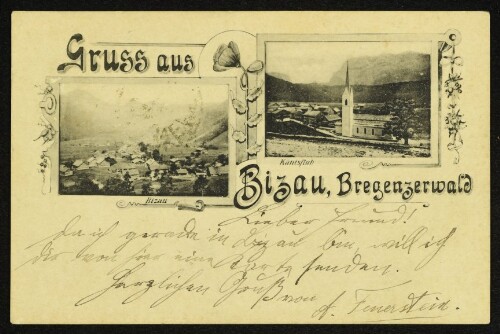 Gruss aus
Kanisfluh
Bizau
Bizau, Bregenzerwald
Lieber Freund!
Da ich gerade in Bizau bin, will ich
dir von hier eine Carte senden.
Herzlichen Gruß von
J. Feuerstein.